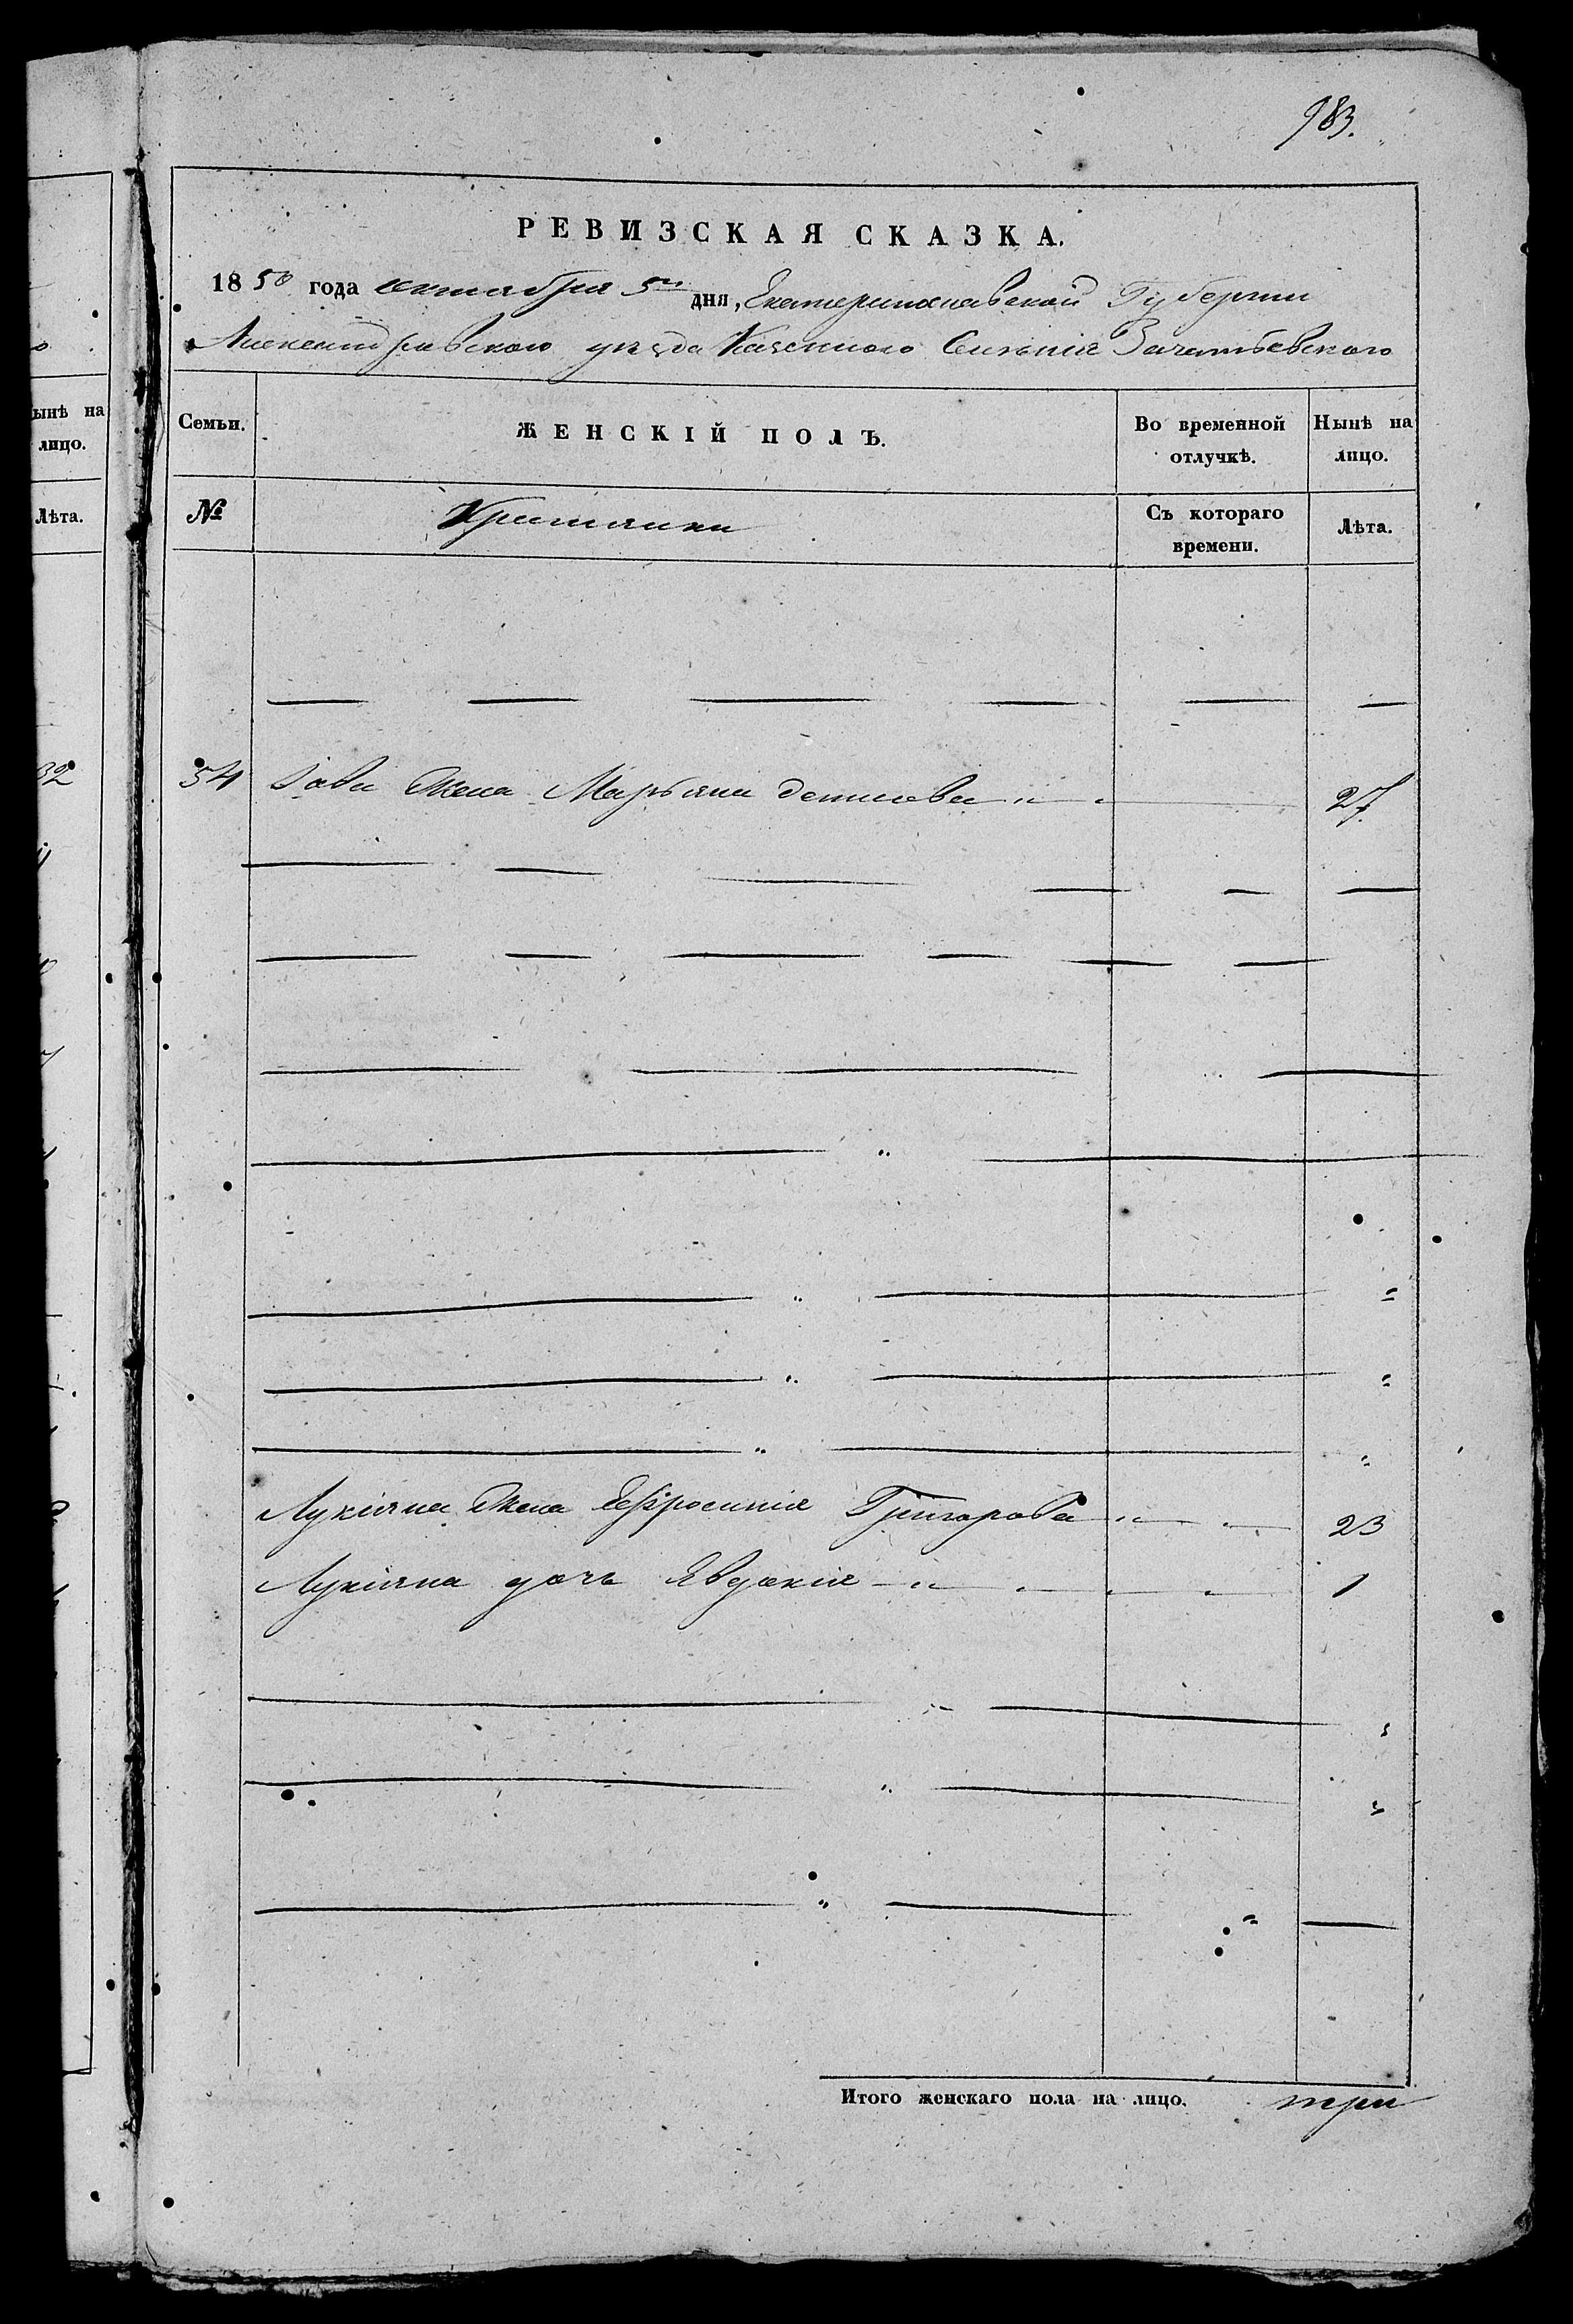 983.
РЕВИЗСКАЯ СКАЗКА.
1850 года октября 5го дня, Екатеринославской Губернии
Александровского уезда Казенного Селенія Зачатьевского
Семьи. ЖЕНСКІЙ ПОЛЪ. Во временной отлучкѣ. Нынѣ на лицо.
№ Кристянки Съ котораго времени. Лѣта.
ынѣ на
лицо.
Лѣта.
32
54 жена Марьяна 27
Лукіяна жена Ефросинія Григорова 23
Лукіяна дочь Евдокія 1
Итого женскаго пола на лицо. три